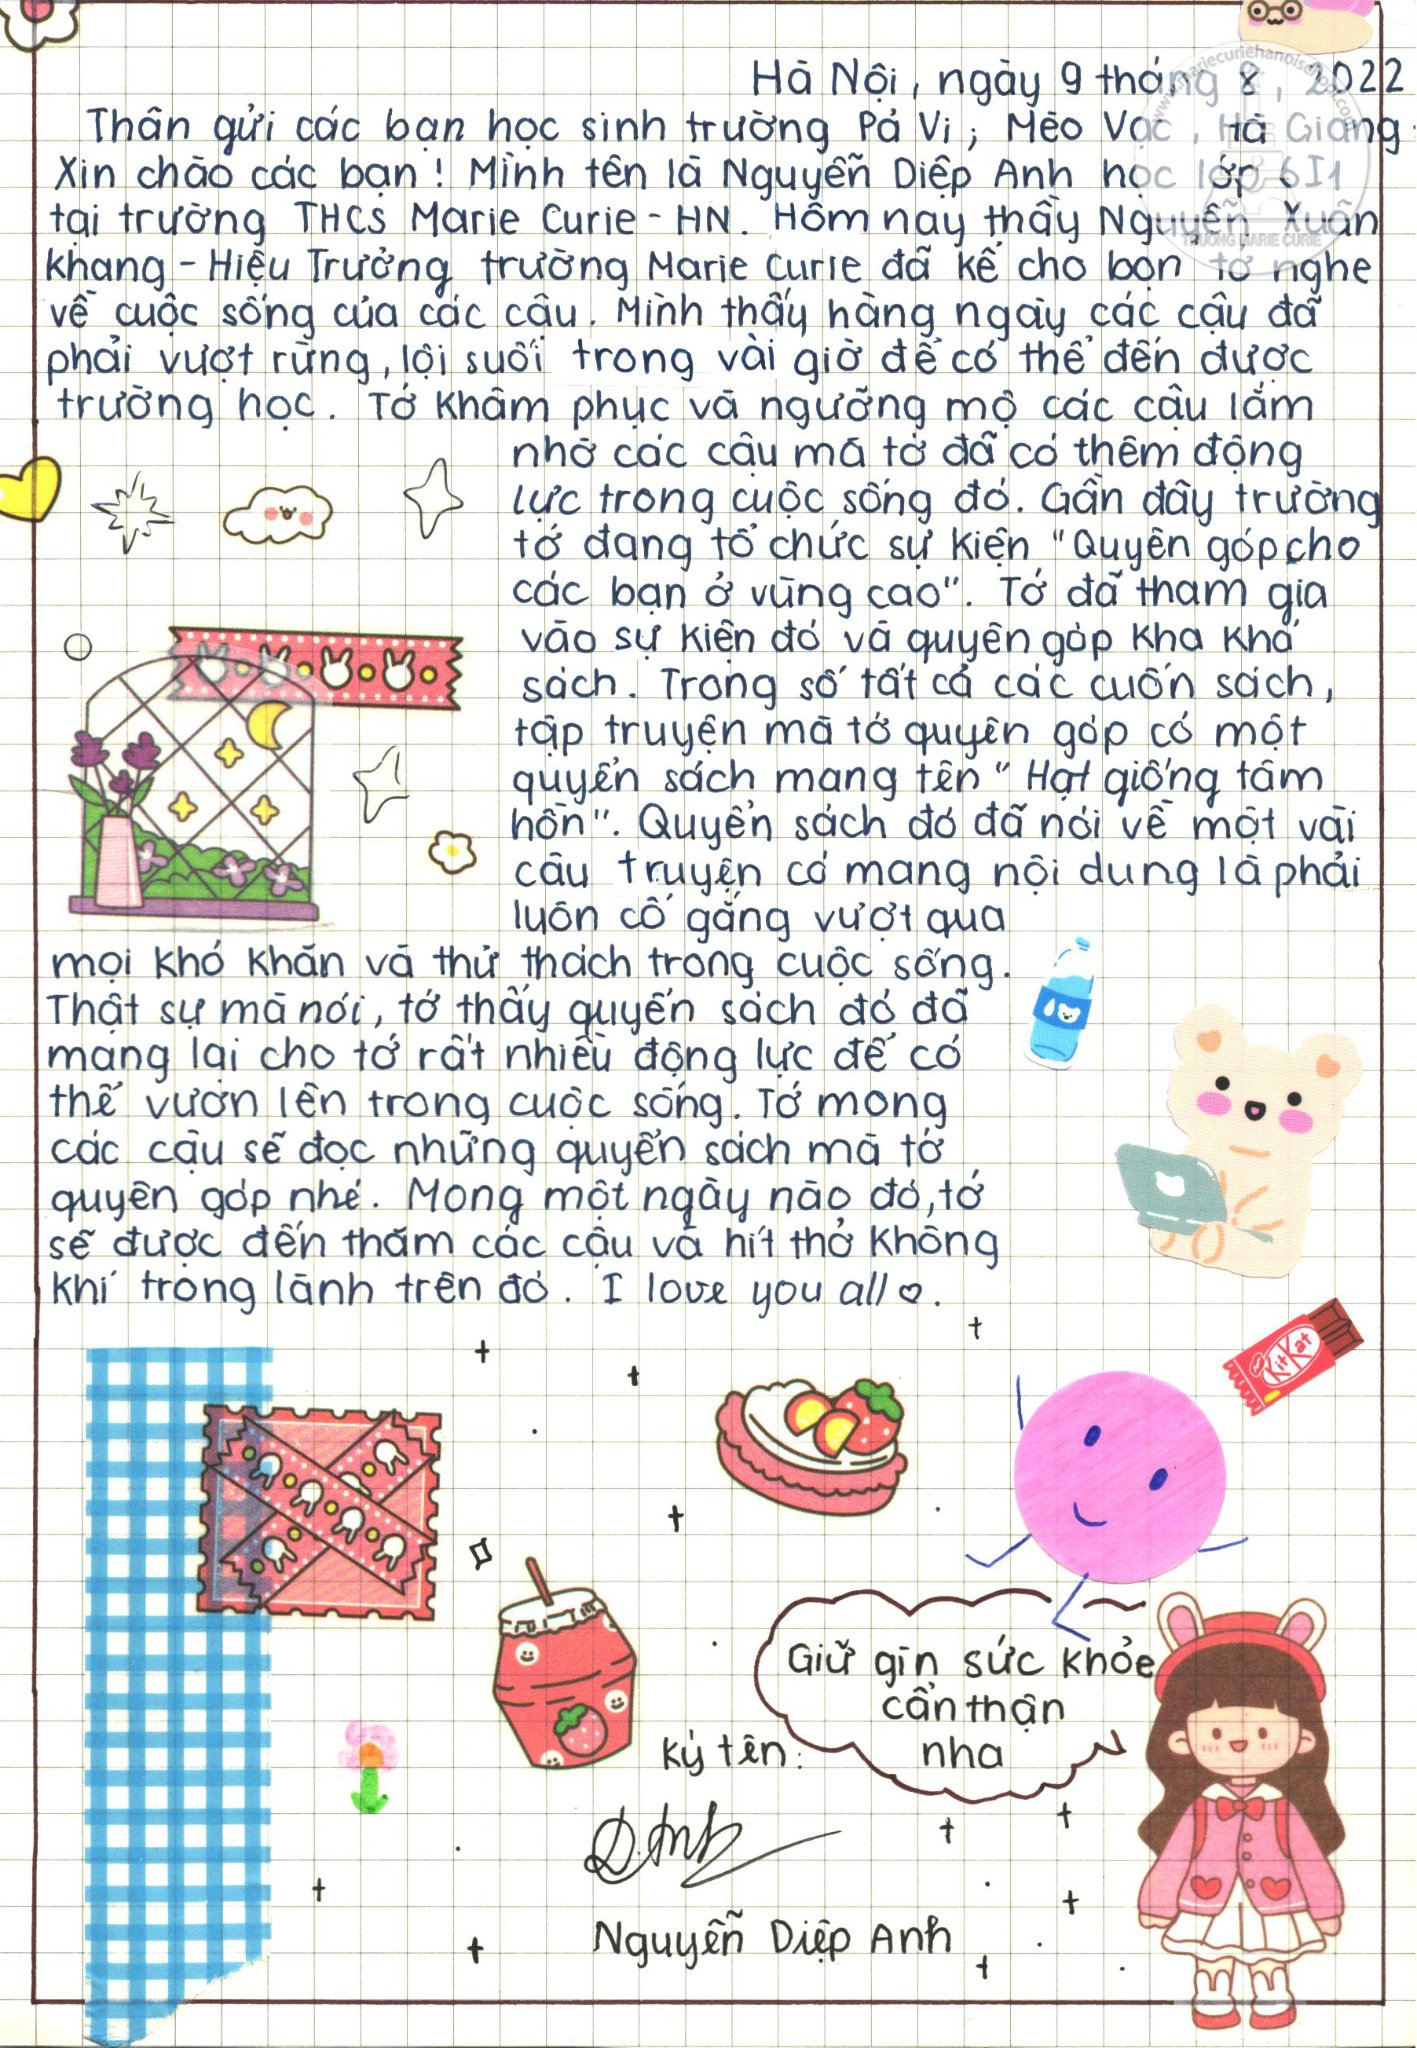 Hà Nội, ngày 9 tháng 8, 2022
Thân gửi các bạn học sinh trường Pả Vi, Mèo Vạc, Hà Giang.
Xin chào các bạn! Mình tên là Nguyễn Diệp Anh học lớp 6I1
tại trường THCS Marie Curie - HN. Hôm nay thầy Nguyễn Xuân
Khang - Hiệu Trưởng trường Marie Curie đã kể cho bọn tớ nghe
về cuộc sống của các cậu. Mình thấy hàng ngày các cậu đã
phải vượt rừng, lội suối trong vài giờ để có thể đến được
trường học. Tớ khâm phục và ngưỡng mộ các cậu lắm
nhờ các cậu mà tớ đã có thêm động
lực trong cuộc sống đó. Gần đây trường
tớ đang tổ chức sự kiện "Quyên góp cho
các bạn ở vùng cao". Tớ đã tham gia
vào sự kiện đó và quyên góp kha khá
sách. Trong số tất cả các cuốn sách,
tập truyện mà tớ quyên góp có một
quyển sách mang tên "Hạt giống tâm
hồn". Quyển sách đó đã nói về một vài
câu truyện có mang nội dung là phải
luôn cố gắng vượt qua
mọi khó khăn và thử thách trong cuộc sống.
Thật sự mà nói, tớ thấy quyển sách đó đã
mang lại cho tớ rất nhiều động lực để có
thể vươn lên trong cuộc sống. Tớ mong
các cậu sẽ đọc những quyển sách mà tớ
quyên góp nhé. Mong một ngày nào đó, tớ
sẽ được đến thăm các cậu và hít thở không
khí trong lành trên đó. I love you all ♡.
KitKat
Giữ gìn sức khỏe
cẩn thận
nha
Ký tên:
D.Anh
Nguyễn Diệp Anh
www.mariecuriehanoischool.com
TRƯỜNG MARIE CURIE